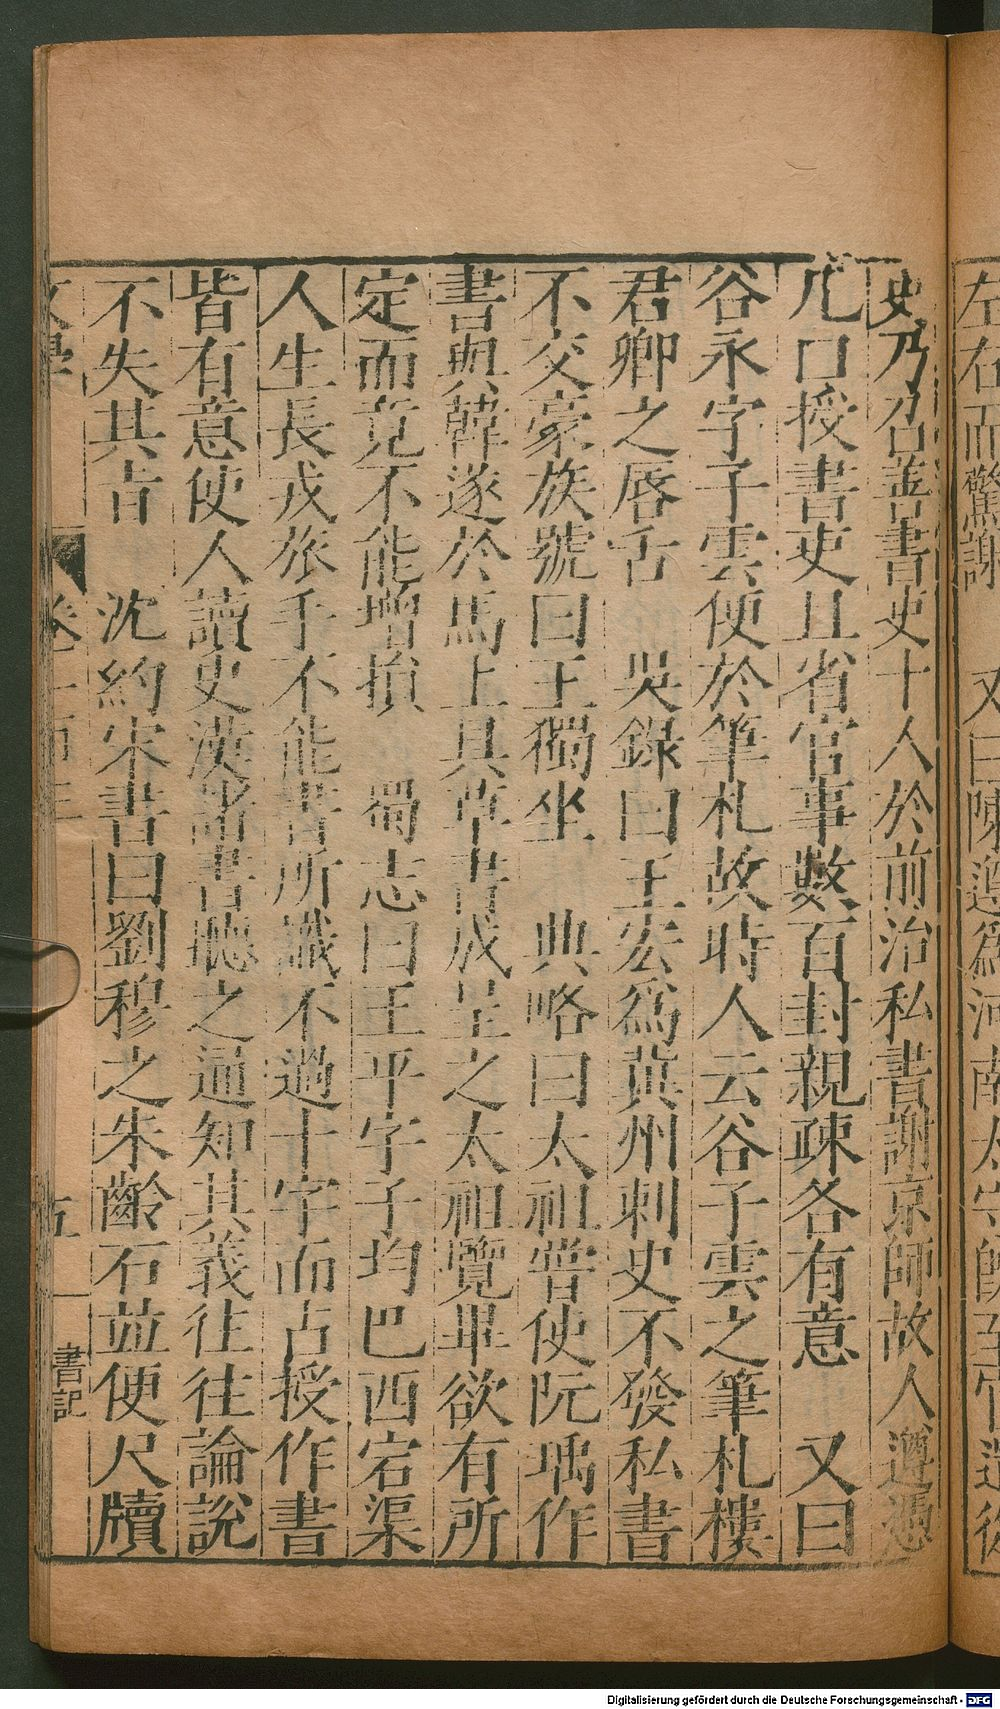 左右而驚謝　又曰陳遵為河南太守
史乃召善書吏十人於前治私書謝京師故人遵憑
几口授書吏且省官事數百封親疎各有意　又曰
谷永字子雲便於筆札故時人云谷子雲之筆札樓
君卿之唇舌　吳錄曰王宏為冀州刺史不發私書
不交豪族號曰王獨坐　典略曰太祖嘗使阮瑀作
書與韓遂於馬上具草書成呈之太祖覽畢欲有所
定而竟不能增損　蜀志曰王平字子均巴西宕渠
人生長戎旅手不能書所識不過十字而占授作書
皆有意使人讀史漢諸書聽之遍知其義往往論說
不失其旨　沈約宋書曰劉穆之朱齡石並便尺牘
書記
Digitalisierung gefördert durch die Deutsche Forschungsgemeinschaft - DFG